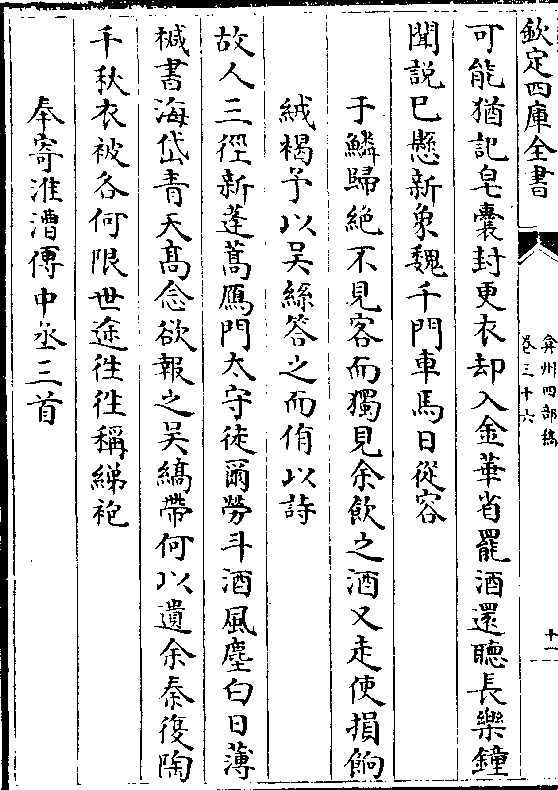 欽定四庫全書
弇州四部稿
卷三十六
十一
可能猶記皂囊封更衣却入金華省罷酒還聽長樂鐘
聞說已懸新象魏千門車馬日從容
于鱗歸絶不見客而獨見余飲之酒又走使損餉
絨褐予以吳絲答之而侑以詩
故人三徑新蓬蒿鴈門太守徒爾勞斗酒風塵白日薄
椷書海岱青天高念欲報之吳縞帶何以遺余秦復陶
千秋衣被各何限世途徃徃稱綈袍
奉寄淮漕傅中丞三首